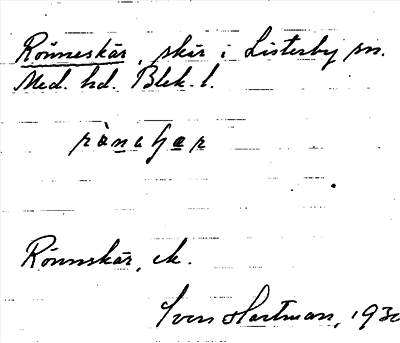 Rönneskär, skär i Listerby sn.
Med. hd. Blek. l.
Rönnskär, ek.
Sven Hartman, 193